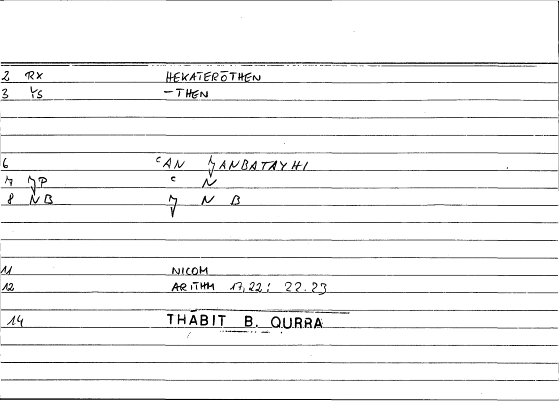 2 RX HEKATERŌTHEN
3 YS -THEN
6 ʿAN ǦANBATAYHI
7 ǦP ʿ N
8 NB Ǧ N B
11 NICOM
12 ARITHM 17,22; 22.23
14 THĀBIT B. QURRA